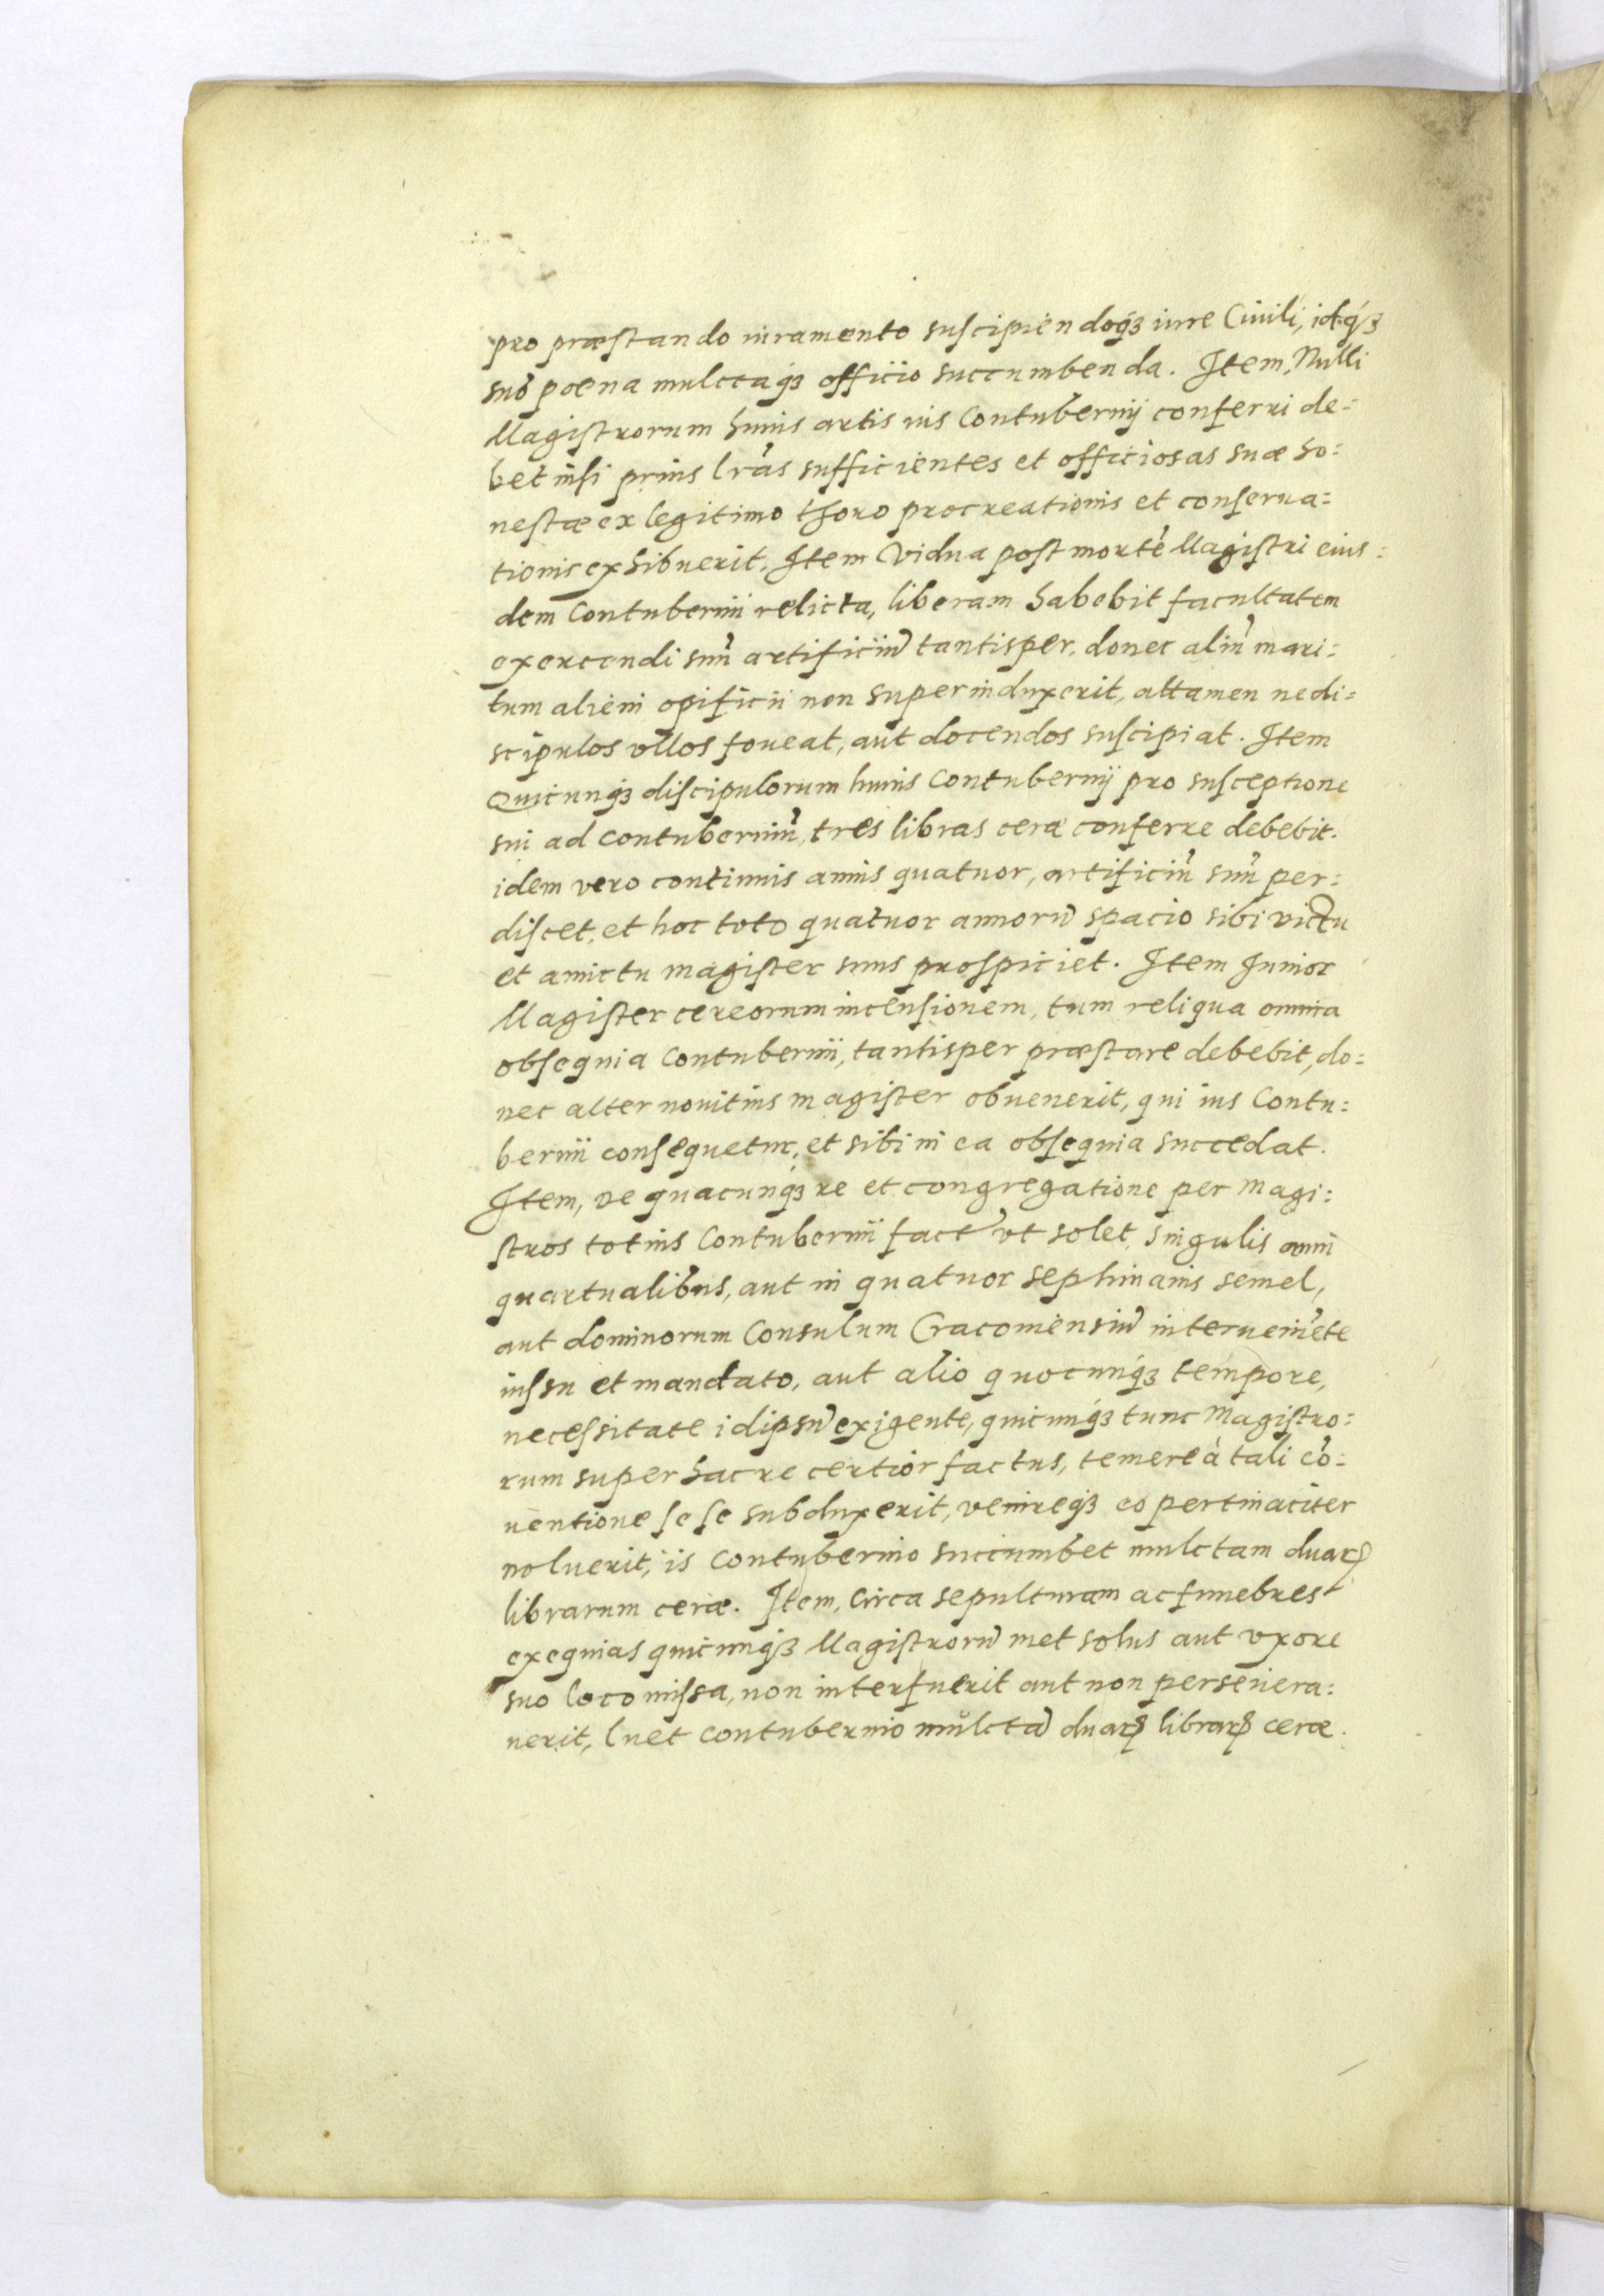 pro præstando iuramento suscipiendoq́ꝫ iure Ciuili, idq́ꝫ
sub poena mulctaq́ꝫ officio succumbenda. Item, Nulli
Magistrorum huius artis ius Contubernij conferri de=
bet nisi prius lr̃as sufficientes et officiosas suæ ho=
nestæ ex legitimo thoro procreationis et conserua=
tionis exhibuerit. Item Vidua post mortẽ Magistri eius=
dem Contubernii relicta, liberam habebit facultatem
exercendi suũ artificiũ tantisper, donec aliũ mari=
tum alieni opificii non superinduxerit, attamen ne di=
scipulos vllos foueat, aut docendos suscipiat. Item
Quicunq́ꝫ discipulorum huius Contubernij pro susceptione
sui ad Contuberniũ, tres libras ceræ conferre debebit.
idem vero continuis annis quatuor, artificiũ suũ per=
discet, et hoc toto quatuor annorũ spacio sibi victu
et amictu magister suus prospiciet. Item Iunior
Magister cereorum incensionem, tum reliqua omnia
obsequia Contubernii, tantisper præstare debebit, do=
nec alter nouitius magister obuenerit, qui ius Contu=
bernii consequetur, et sibi in ea obsequia succedat.
Item, de quacunq́ꝫ re et congregatione per Magi=
stros totius Contubernii fact̃ vt solet, singulis anni
quartualibus, aut in quatuor septimanis semel,
aut dominorum Consulum Cracouiensiũ interueniẽte
iussu et mandato, aut alio quocunq́ꝫ tempore,
necessitate idipsũ exigente, quicunq́ꝫ tunc Magistro=
rum super hac re certior factus, temere à tali cõ=
uentione se se subduxerit, venireq́ꝫ eo pertinaciter
noluerit, is Contubernio succumbet mulctam duarꝝ
librarum ceræ. Item, Circa sepulturam ac funebres
exequias quicunq́ꝫ Magistrorũ met solus aut vxore
suo loco missa, non interfuerit aut non perseuera=
uerit, luet Contubernio mulctã duarꝝ librarꝝ ceræ.